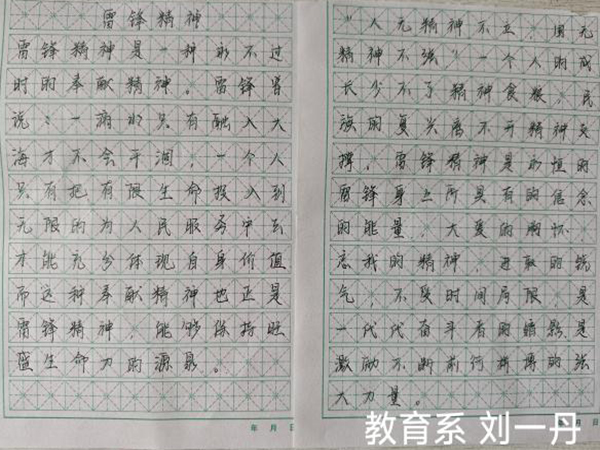 雷锋精神
雷锋精神是一种永不过
时的奉献精神。雷锋曾
说：一滴水只有融入大
海才不会干涸，一个人
只有把有限生命投入到
无限的为人民服务中去
才能充分体现自身价值
而这种奉献精神也正是
雷锋精神，能够保持旺
盛生命力的源泉。
"人无精神不立，国无
精神不强"一个人的成
长少不了精神食粮，民
族的复兴离不开精神支
撑，雷锋精神是永恒的
雷锋身上所具有的信念
的能量、大爱的胸怀、
忘我的精神、进取的锐
气，不受时间局限，是
一代代奋斗者的缩影，是
激励不断前行拼搏的强
大力量。
年 月 日
年 月 日
教育系 刘一丹